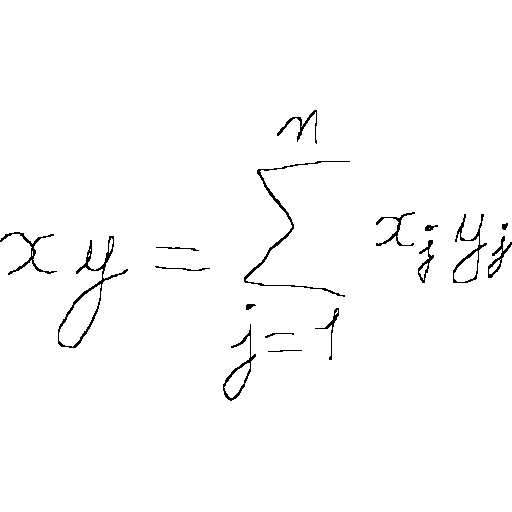 xy = \sum_{j=1}^{n} x_j y_j